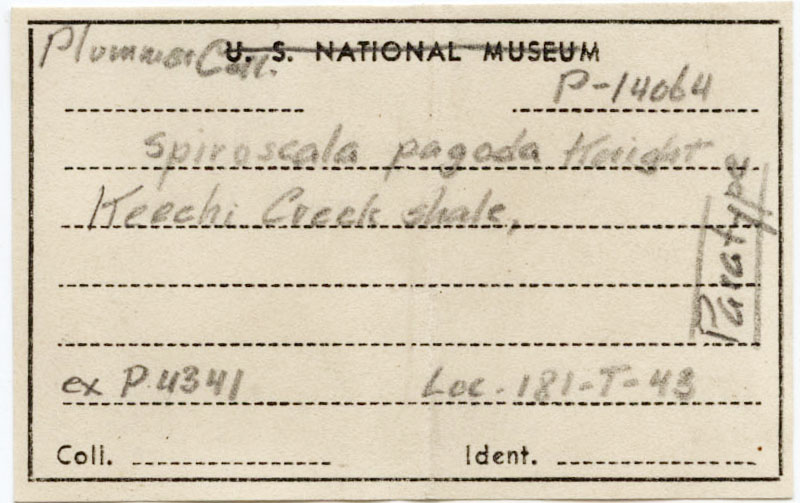 U. S. NATIONAL MUSEUM
Plummer Coll.
P-14064
Spiroscala pagoda Knight
Keechi Creek shale,
Paratype
ex P.4341 Loc. 181-T-43
Coll. Ident.